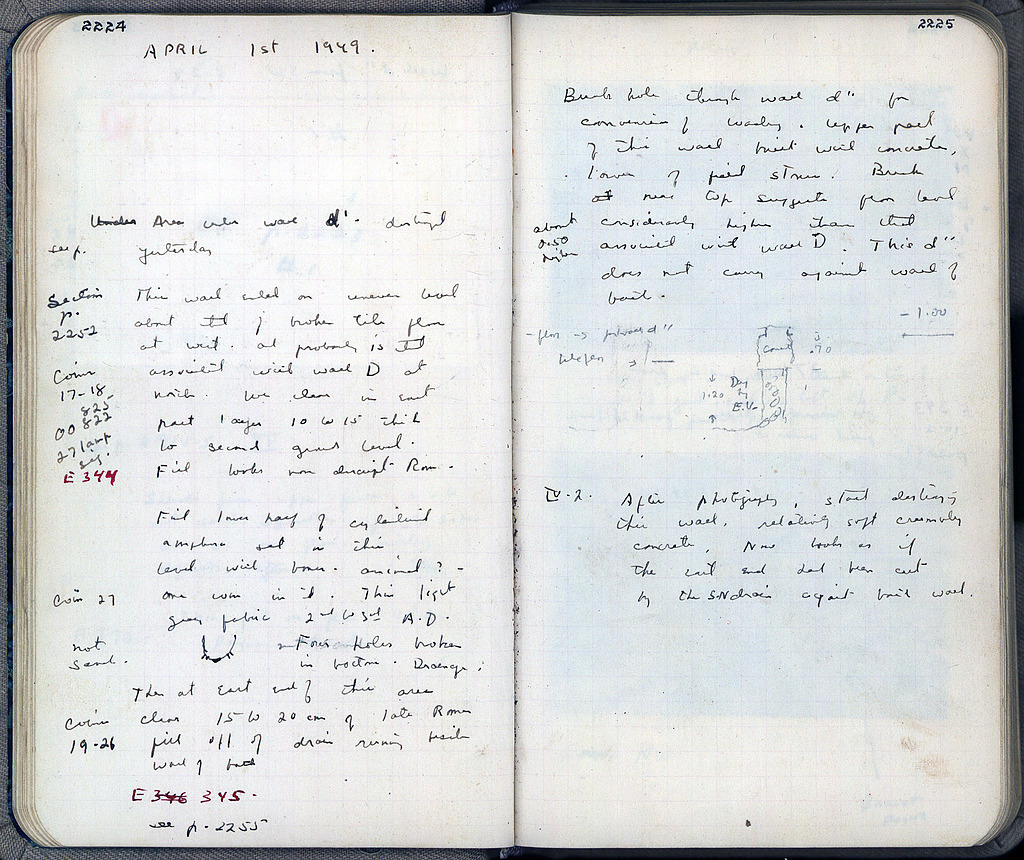 2224
APRIL 1st 1949.
Under Area under wall d'. destroyed
see p. yesterday
Section p. 2252
This wall ended on uneven level
about it of broken tile floor
at west. at probably is it
Coins 17-18
associated with wall D at
north. We clean in east
825-
00 822
27 lamp
sig.
part layer 10 to 15 thick
to second ground level.
E 344
Fill looks non descript Rom.
Find lower half of cylindrical
amphora set in this
level with bones. animal? -
Coin 27
one coin in it. This light
gray fabric 2nd to 3rd A.D.
not saved.
Four holes broken
in bottom. Drainage?
Then at East end of this area
Coins 19-26
clean 15 to 20 cm of late Roman
fill off of drain running beside
wall of bath
E 346 345.
see p. 2255
2225
Break hole through wall d" for
convenience of working. Upper part
of this wall built with concrete,
lower of field stones. Break
at near top suggests floor level
about 0.50 higher
considerably higher than that
associated with wall D. This d"
does not carry against wall of
bath.
- 1.00
floor → for wall d"
Conc
.70
1.20
Dug by
E.V.
IV-2. After photography, start destroying
this wall, relatively soft crumbly
concrete. Now looks as if
the east end had been cut
by the SN drain against bath wall.